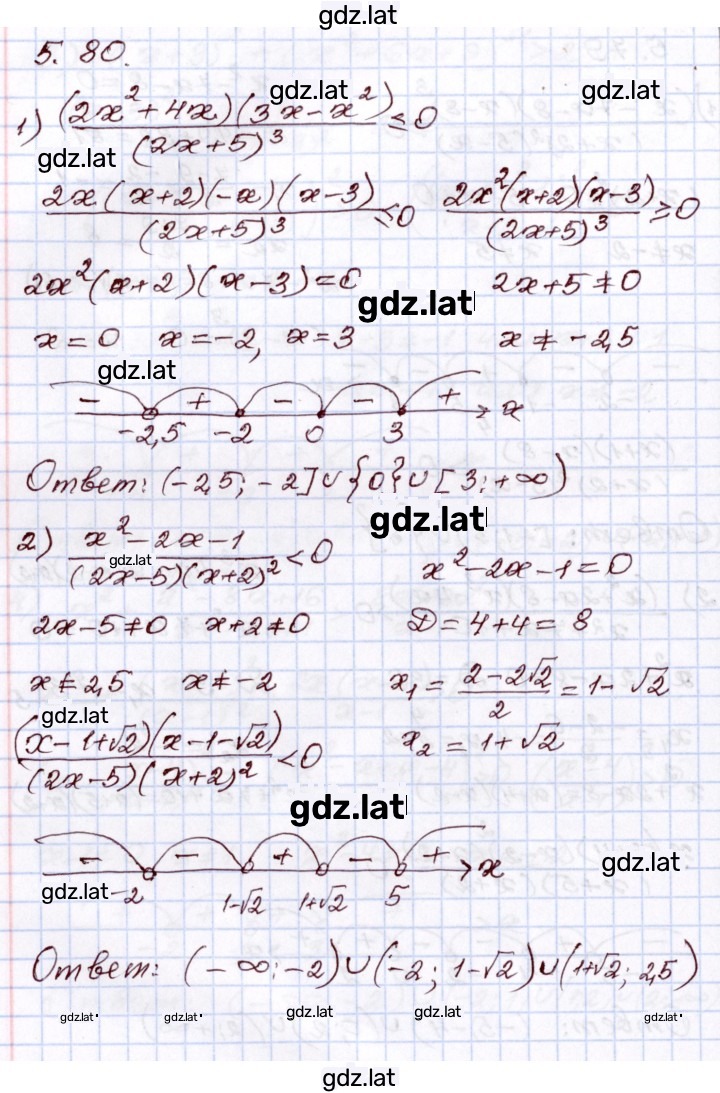 gdz.lat
5. 80.
gdz.lat gdz.lat
1) (2x² + 4x)(3x - x²) / (2x+5)³ ≤ 0
gdz.lat
2x(x+2)(-x)(x-3) / (2x+5)³ ≤ 0   2x²(x+2)(x-3) / (2x+5)³ ≥ 0
2x²(x+2)(x-3) = 0   2x+5 ≠ 0
gdz.lat
x = 0   x = -2,   x = 3   x ≠ -2,5
gdz.lat
- + - - + x
-2,5 -2 0 3
Ответ: (-2,5; -2] ∪ {0} ∪ [3; +∞)
gdz.lat
2) x² - 2x - 1 / (2x-5)(x+2)² < 0   x² - 2x - 1 = 0
gdz.lat
2x-5 ≠ 0   x+2 ≠ 0   D = 4+4 = 8
x ≠ 2,5   x ≠ -2   x₁ = (2-2√2)/2 = 1-√2
gdz.lat
(x-1+√2)(x-1-√2) / (2x-5)(x+2)² < 0   x₂ = 1+√2
gdz.lat
- - + - + x
gdz.lat
gdz.lat -2 1-√2 1+√2 5
Ответ: (-∞; -2) ∪ (-2; 1-√2) ∪ (1+√2; 2,5)
gdz.lat gdz.lat gdz.lat gdz.lat gdz.lat
gdz.lat